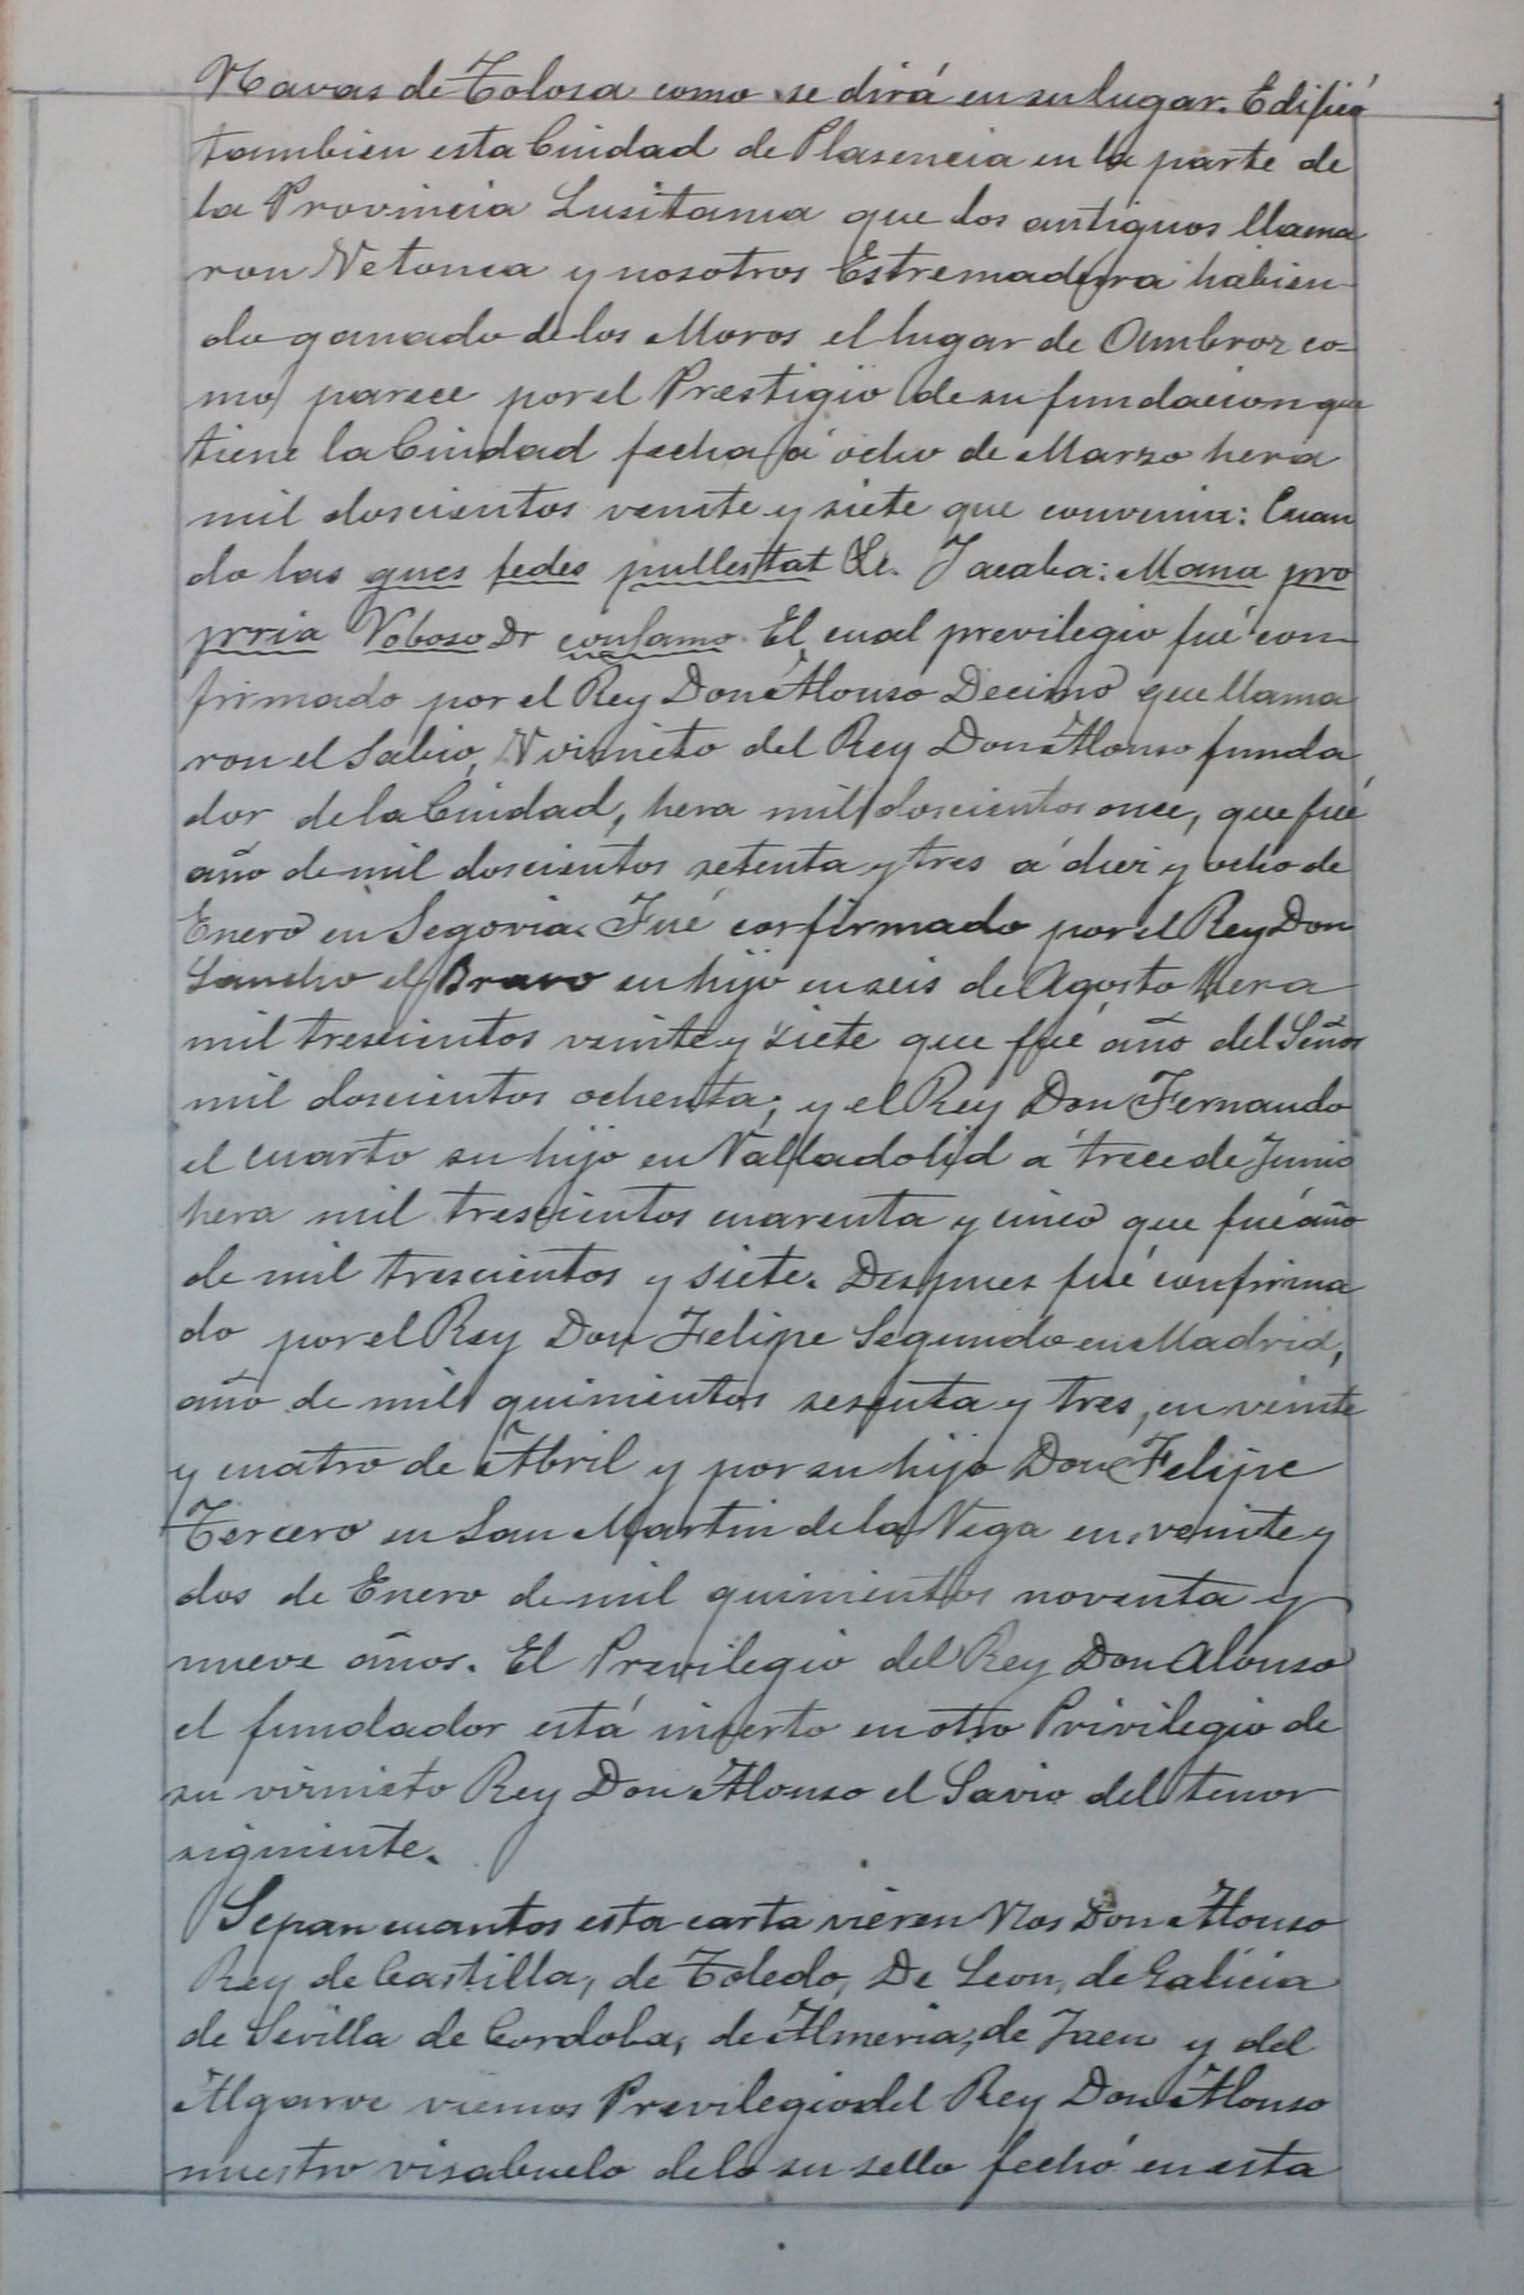 Navas de Tolosa como se dirá en su lugar. Edificó
tambien esta Ciudad de Plasencia en la parte de
la Provincia Lusitania que los antiguos llama
ron Vetonia y nosotros Estremadura habien-
do ganado de los Moros el lugar de Ambroz co-
mo parece por el Prestigio de su fundacion que
tiene la Ciudad fecha á ocho de Marzo hera
mil doscientos veinte y siete que convenia: Cuan
do las ques fedes pullestat Le. Jacaba: Mana pro
prria Voboso Dr confamo. El cual previlegio fué con-
firmado por el Rey Don Alonso Decimo que llama
ron el Sabio, Virnieto del Rey Don Alonso funda
dor de la Ciudad, hera mil doscientos once, que fué
año de mil doscientos setenta y tres á diez y ocho de
Enero en Segovia. Fué corfirmado por el Rey Don
Sancho el Bravo su hijo en seis de Agosto hera
mil trescientos veinte y siete que fué año del Señor
mil doscientos ochenta; y el Rey Don Fernando
el cuarto su hijo en Valladolid á trece de Junio
hera mil trescientos cuarenta y cinco que fué año
de mil trescientos y siete. Despues fué confirma
do por el Rey Don Felipe Segundo en Madrid,
año de mil quinientos sesenta y tres, en veinte
y cuatro de Abril y por su hijo Don Felipe
Tercero en San Martin de la Vega en veinte y
dos de Enero de mil quinientos noventa y
nueve años. El Previlegio del Rey Don Alonso
el fundador está inserto en otro Privilegio de
su virnieto Rey Don Alonso el Savio del tenor
siguiente.
Sepan cuantos esta carta vieren Nos Don Alonso
Rey de Castilla, de Toledo, De Leon, de Galicia
de Sevilla de Cordoba, de Almeria, de Jaen y del
Algarve viemos Previlegio del Rey Don Alonso
nuestro visabuelo delo su sello fechó en esta